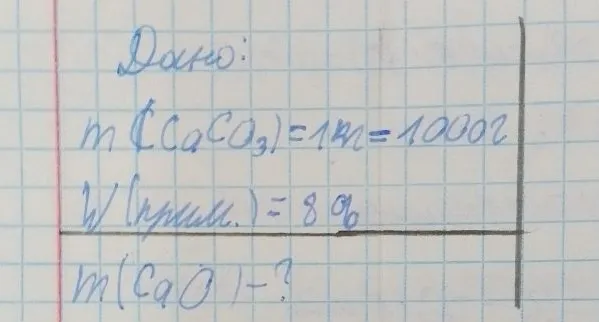 Дано:
m(CaCO₃)=1т=1000г
W(прим.)=8%
m(CaO)-?